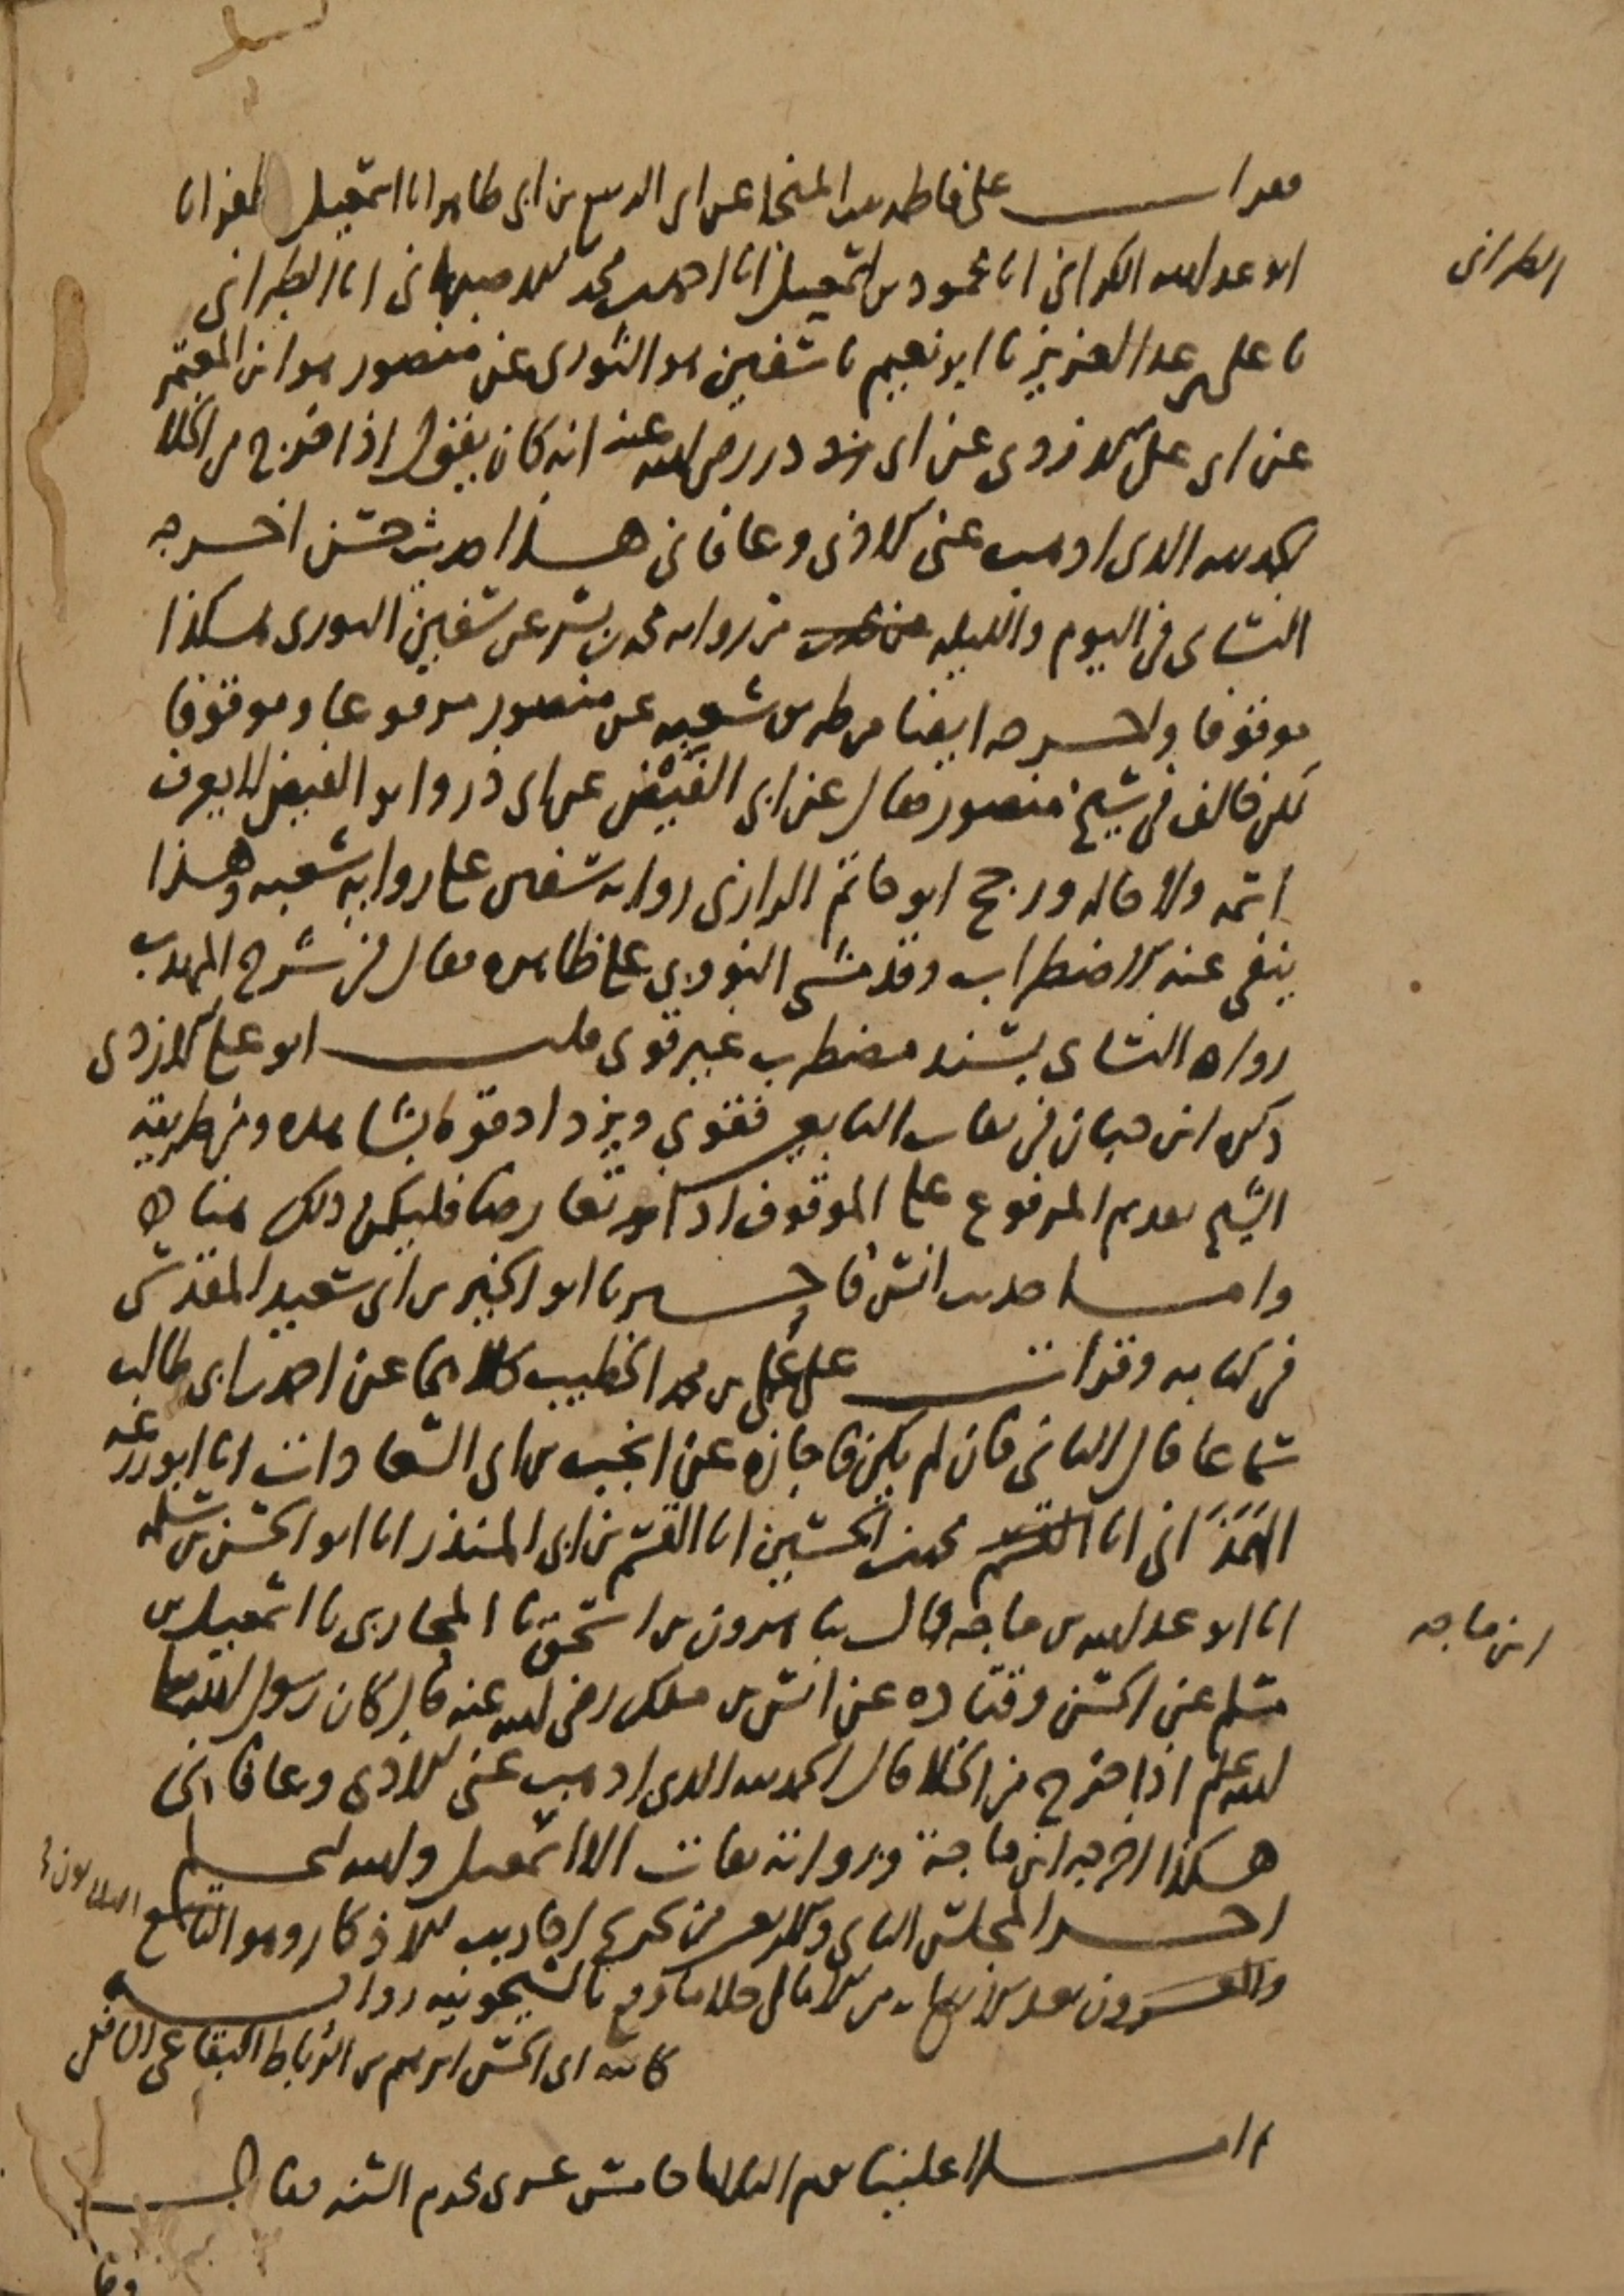 فقرأت على فاطمة بنت المنجا عن أبي الربيع بن أبي طاهر أنا إسمعيل بن ظفر أنا
أبو عبد الله الكراني أنا محمود بن إسمعيل أنا أحمد بن محمد الاصبهاني أنا الطبراني
الطبراني
نا علي بن عبد العزيز نا أبو نعيم نا سفين هو الثوري عن منصور هو ابن المعتمر
عن أبي علي الازدي عن أبي ذر رضي الله عنه أنه كان يقول إذا خرج من الخلا
الحمد لله الذي أذهب عني الاذى وعافاني هذا حديث حسن أخرجه
النساي في اليوم والليلة من رواية محمد بن بشر عن سفين الثوري هكذا
موقوفا وأخرجه أيضا من طريق شعبة عن منصور مرفوعا وموقوفا
لكن خالف في شيخ منصور فقال عن أبي الفيض عن أبي ذر وأبو الفيض لا يعرف
اسمه ولا حاله ورجح أبو حاتم الرازي رواية سفين على رواية شعبة وهذا
ينفي عنه الاضطراب وقد مشى النووي على ظاهره فقال في شرح المهذب
رواه النساي بسند مضطرب غير قوي قلت أبو علي الازدي
ذكره ابن حبان في ثقات التابعين فقوي ويزداد قوة بشاهده ومن طريقة
الشيخ تقديم المرفوع على الموقوف إذا تعارضا فليكن ذلك هنا
وأما حديث أنس فأخبرنا أبو الخير بن أبي سعيد المقدسي
في كتابه وقرأت على علي بن محمد الخطيب كلاهما عن أحمد بن أبي طالب
سماعا قال الثاني فإن لم يكن فاجازة عن انجب بن أبي السعادات أنا أبو زرعة
الهمذاني أنا محمد بن الحسين أنا القسم بن أبي المنذر أنا أبو الحسن بن سلمة
أنا أبو عبد الله بن ماجه قال ثنا هرون بن إسحق نا المحاربي نا إسمعيل بن
ابن ماجه
مسلم عن الحسن وقتادة عن أنس بن ملك رضي الله عنه قال كان رسول الله صلى
الله عليه وسلم إذا خرج من الخلا قال الحمد لله الذي أذهب عني الاذى وعافاني
هكذا أخرجه ابن ماجة ورواته ثقات إلا إسمعيل والله أعلم
آخر المجلس الثاني والاربعين من تخريج أحاديث الاذكار وهو التاسع
والعشرون بعد من الامالي بالشيخونية رواية
كاتبه أبي الحسن إبرهيم بن الرباط البقاعي الشافعي
ثم أملا علينا يوم الثلاثا خامس عشري محرم السنة فقال
وقا